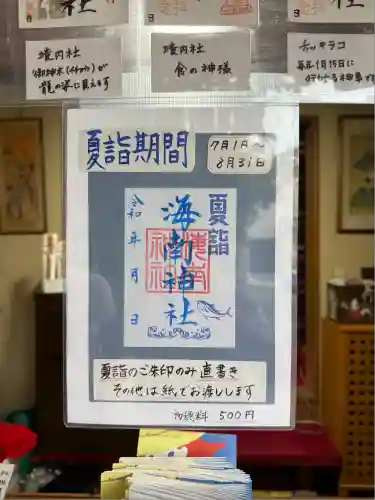 境内社
御神木(イチョウ)が
龍の姿に見えます
境内社
食の神様
チャッキラコ
毎年1月15日に
夏詣期間
7月1日〜
8月31日
夏詣
海南神社
令和 年 月 日
夏詣のご朱印のみ直書き
その他は紙でお渡しします
初穂料 500円